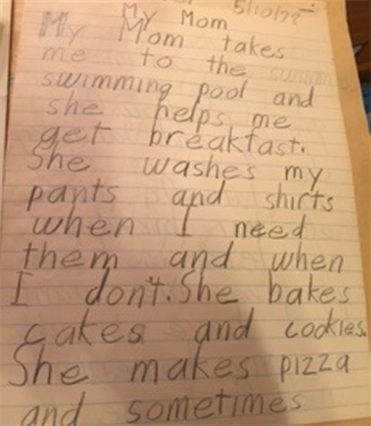 5/10/77
My Mom
My Mom takes
me to the swimm
swimming pool and
she helps me
get breakfast.
She washes my
pants and shirts
when I need
them and when
I don't. She bakes
cakes and cookies.
She makes pizza
and sometimes